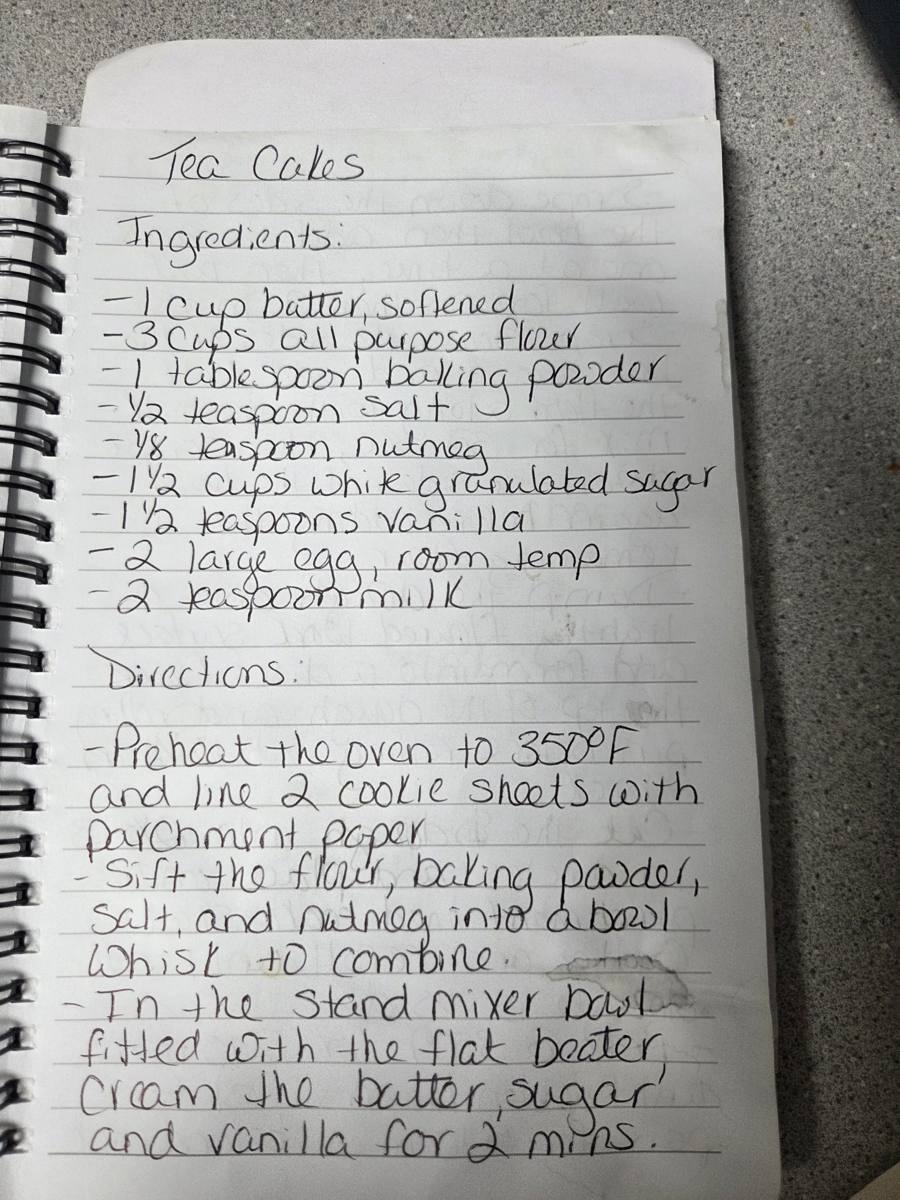 Tea Cakes
Ingredients:
- 1 cup butter, softened
- 3 cups all purpose flour
- 1 tablespoon baking powder
- 1/2 teaspoon salt
- 1/8 teaspoon nutmeg
- 1 1/2 cups white granulated sugar
- 1 1/2 teaspoons vanilla
- 2 large egg, room temp
- 2 teaspoon milk
Directions:
- Preheat the oven to 350°F
and line 2 cookie sheets with
parchment paper
- Sift the flour, baking powder,
salt, and nutmeg into a bowl
Whisk to combine.
- In the stand mixer bowl
fitted with the flat beater,
cream the butter, sugar
and vanilla for 2 mins.